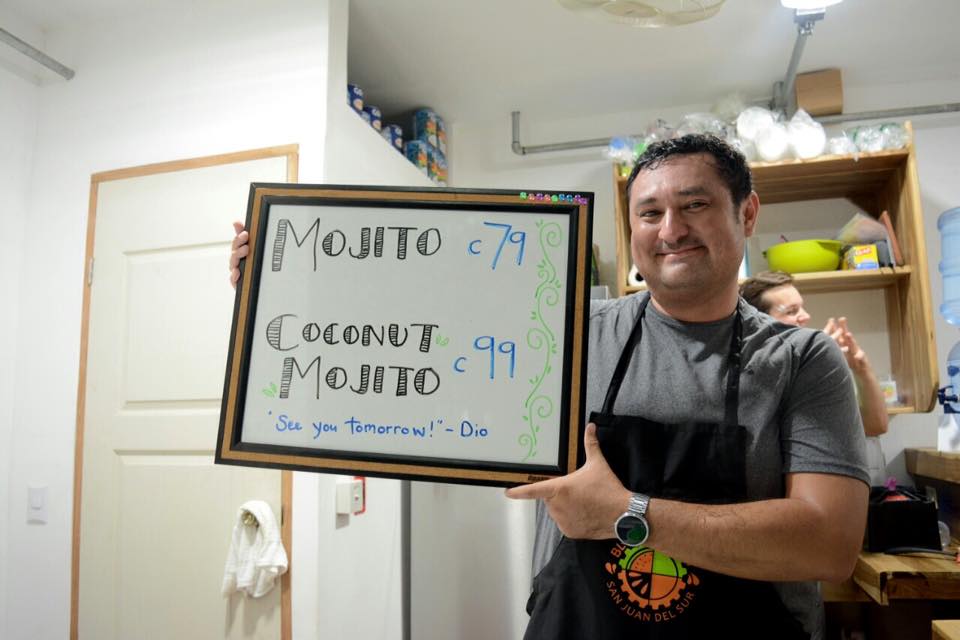 MOJITO C79
COCONUT
MOJITO C99
"See you tomorrow!" - Dio
SAN JUAN DEL SUR